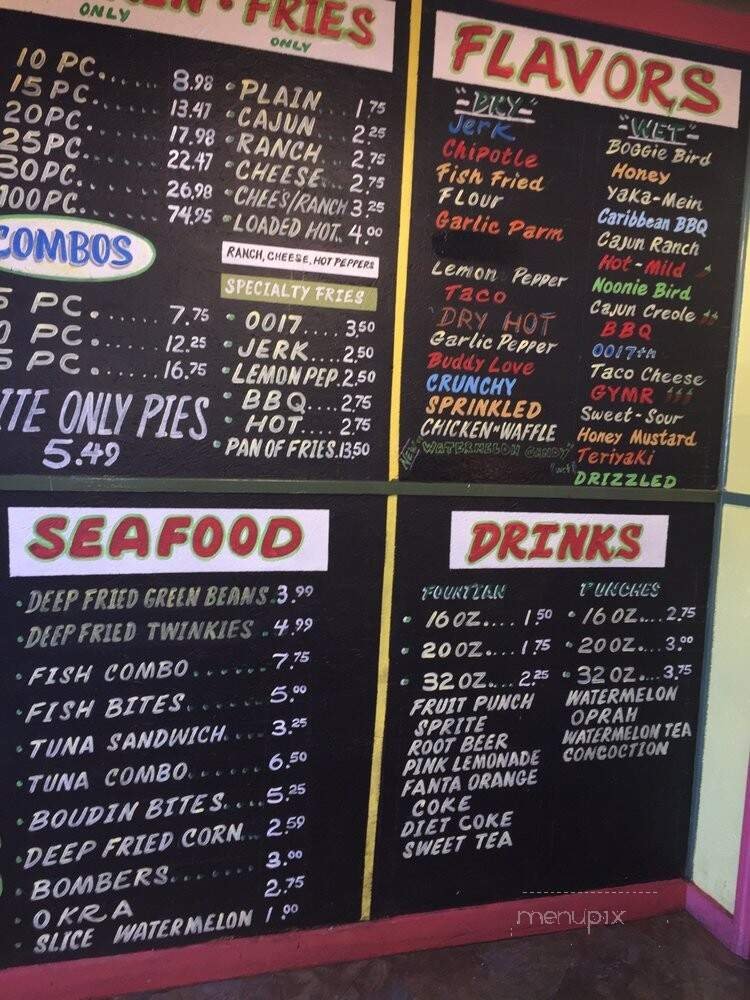 FRIES
ONLY
ONLY
10 PC...... 8.98
15 PC..... 13.47
20 PC...... 17.98
25 PC..... 22.47
30 PC...... 26.98
100 PC..... 74.95
PLAIN... 1.75
CAJUN... 2.25
RANCH... 2.75
CHEESE... 2.75
CHEES/RANCH 3.25
LOADED HOT.. 4.00
RANCH, CHEESE, HOT PEPPERS
COMBOS
5 PC...... 7.75
0 PC...... 12.25
5 PC...... 16.75
ITE ONLY PIES
5.49
SPECIALTY FRIES
0017.... 3.50
JERK.... 2.50
LEMON PEP. 2.50
BBQ.... 2.75
HOT.... 2.75
PAN OF FRIES. 13.50
FLAVORS
"DRY"
Jerk
Chipotle
Fish Fried
Flour
Garlic Parm
Lemon Pepper
Taco
DRY HOT
Garlic Pepper
Buddy Love
CRUNCHY
SPRINKLED
CHICKEN"WAFFLE
NEW "WATERMELON CANDY"
(wet)
"WET"
Boggie Bird
Honey
Yaka-Mein
Caribbean BBQ
Cajun Ranch
Hot-Mild
Noonie Bird
Cajun Creole
BBQ
0017th
Taco Cheese
GYMR
Sweet-Sour
Honey Mustard
Teriyaki
DRIZZLED
SEAFOOD
DEEP FRIED GREEN BEANS. 3.99
DEEP FRIED TWINKIES . 4.99
FISH COMBO...... 7.75
FISH BITES...... 5.00
TUNA SANDWICH.... 3.25
TUNA COMBO...... 6.50
BOUDIN BITES.... 5.25
DEEP FRIED CORN... 2.59
BOMBERS...... 3.00
OKRA 2.75
SLICE WATERMELON 1.00
DRINKS
FOUNTIAN
16 OZ.... 1.50
20 OZ.... 1.75
32 OZ.... 2.25
FRUIT PUNCH
SPRITE
ROOT BEER
PINK LEMONADE
FANTA ORANGE
COKE
DIET COKE
SWEET TEA
PUNCHES
16 OZ... 2.75
20 OZ... 3.00
32 OZ... 3.75
WATERMELON
OPRAH
WATERMELON TEA
CONCOCTION
menupix